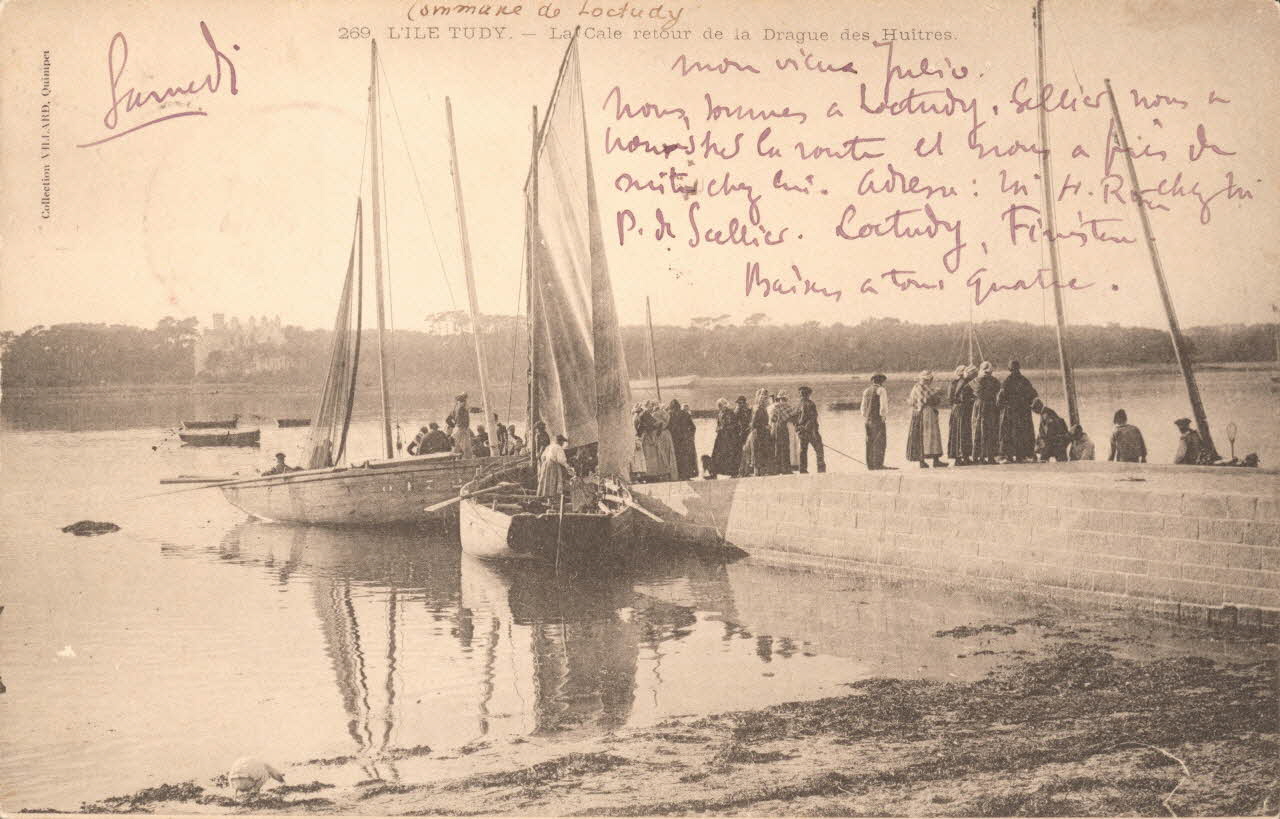 Commune de Loctudy
269. L'ILE TUDY. — La Cale retour de la Drague des Huîtres.
Collection VILLARD, Quimper
Samedi
Mon vieux Julio.
Nous sommes a Loctudy. Sellier nous a
la route et nous a pris de
suite chez lui. Adresse: M H.
P. de Sellier. Loctudy, Finistère
Baisers a tous quatre.